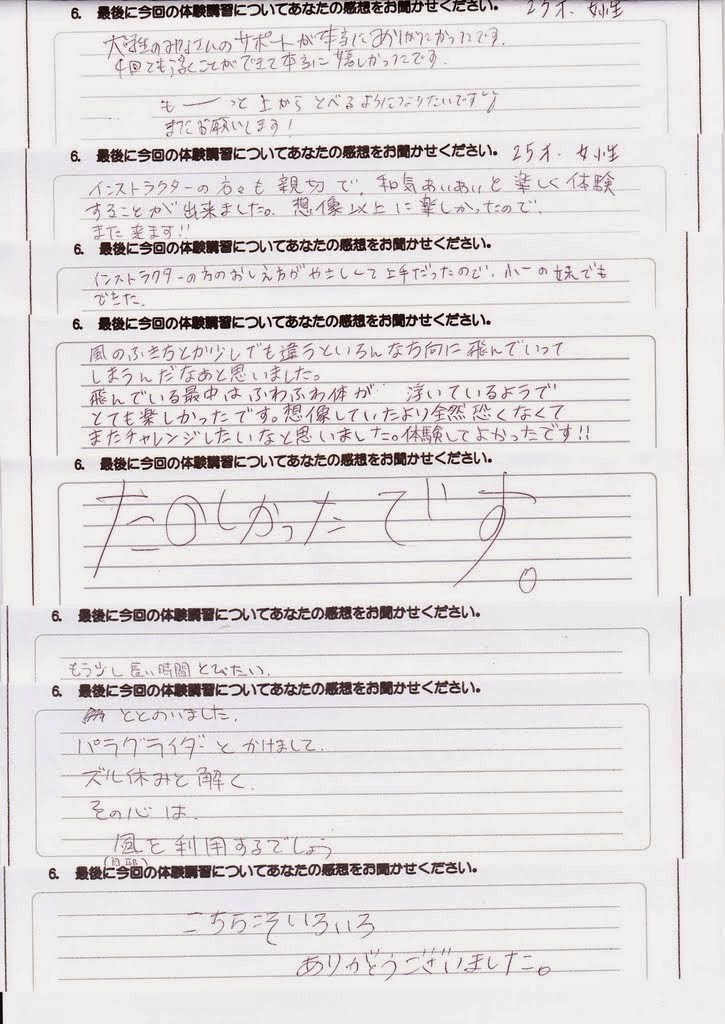 6. 最後に今回の体験講習についてあなたの感想をお聞かせください。 25才. 女性
大学生のみなさんのサポートが本当にありがたかったです。
4回でも浮くことができて本当に嬉しかったです.
も――っと上からとべるようになりたいです
またお願いします!
6. 最後に今回の体験講習についてあなたの感想をお聞かせください。 25才. 女性
インストラクターの方々も親切で、和気あいあいと楽しく体験
することが出来ました。想像以上に楽しかったので、
また来ます!!
6. 最後に今回の体験講習についてあなたの感想をお聞かせください。
インストラクターの方のおしえ方がやさしくて上手だったので、小一の妹でも
できた.
6. 最後に今回の体験講習についてあなたの感想をお聞かせください。
風のふきちとが少しでも違うといろんな方向に飛んでいって
しまうんだなあと思いました。
飛んでいる最中はふわふわ体が 浮いているようで
とても楽しかったです。想像していたより全然恐くなくて
またチャレンジしたいなと思いました。体験してよかったです!!
6. 最後に今回の体験講習についてあなたの感想をお聞かせください。
たのしかったです。
6. 最後に今回の体験講習についてあなたの感想をお聞かせください。
もう少し長い時間とびたい.
6. 最後に今回の体験講習についてあなたの感想をお聞かせください。
ととのいました.
パラグライダーとかけまして.
ズル休みと解く.
その心は.
風を利用するでしょう
(風邪)
6. 最後に今回の体験講習についてあなたの感想をお聞かせください。
こちらこそいろいろ
ありがとうございました。